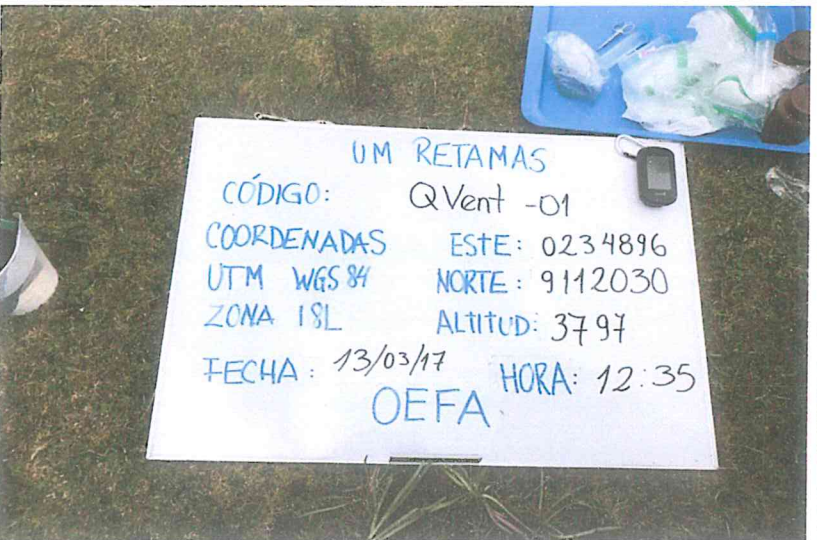 UM RETAMAS
CÓDIGO: QVent -01
COORDENADAS ESTE: 0234896
UTM WGS 84 NORTE: 9112030
ZONA 18L ALTITUD: 3797
FECHA: 13/03/17 HORA: 12:35
OEFA